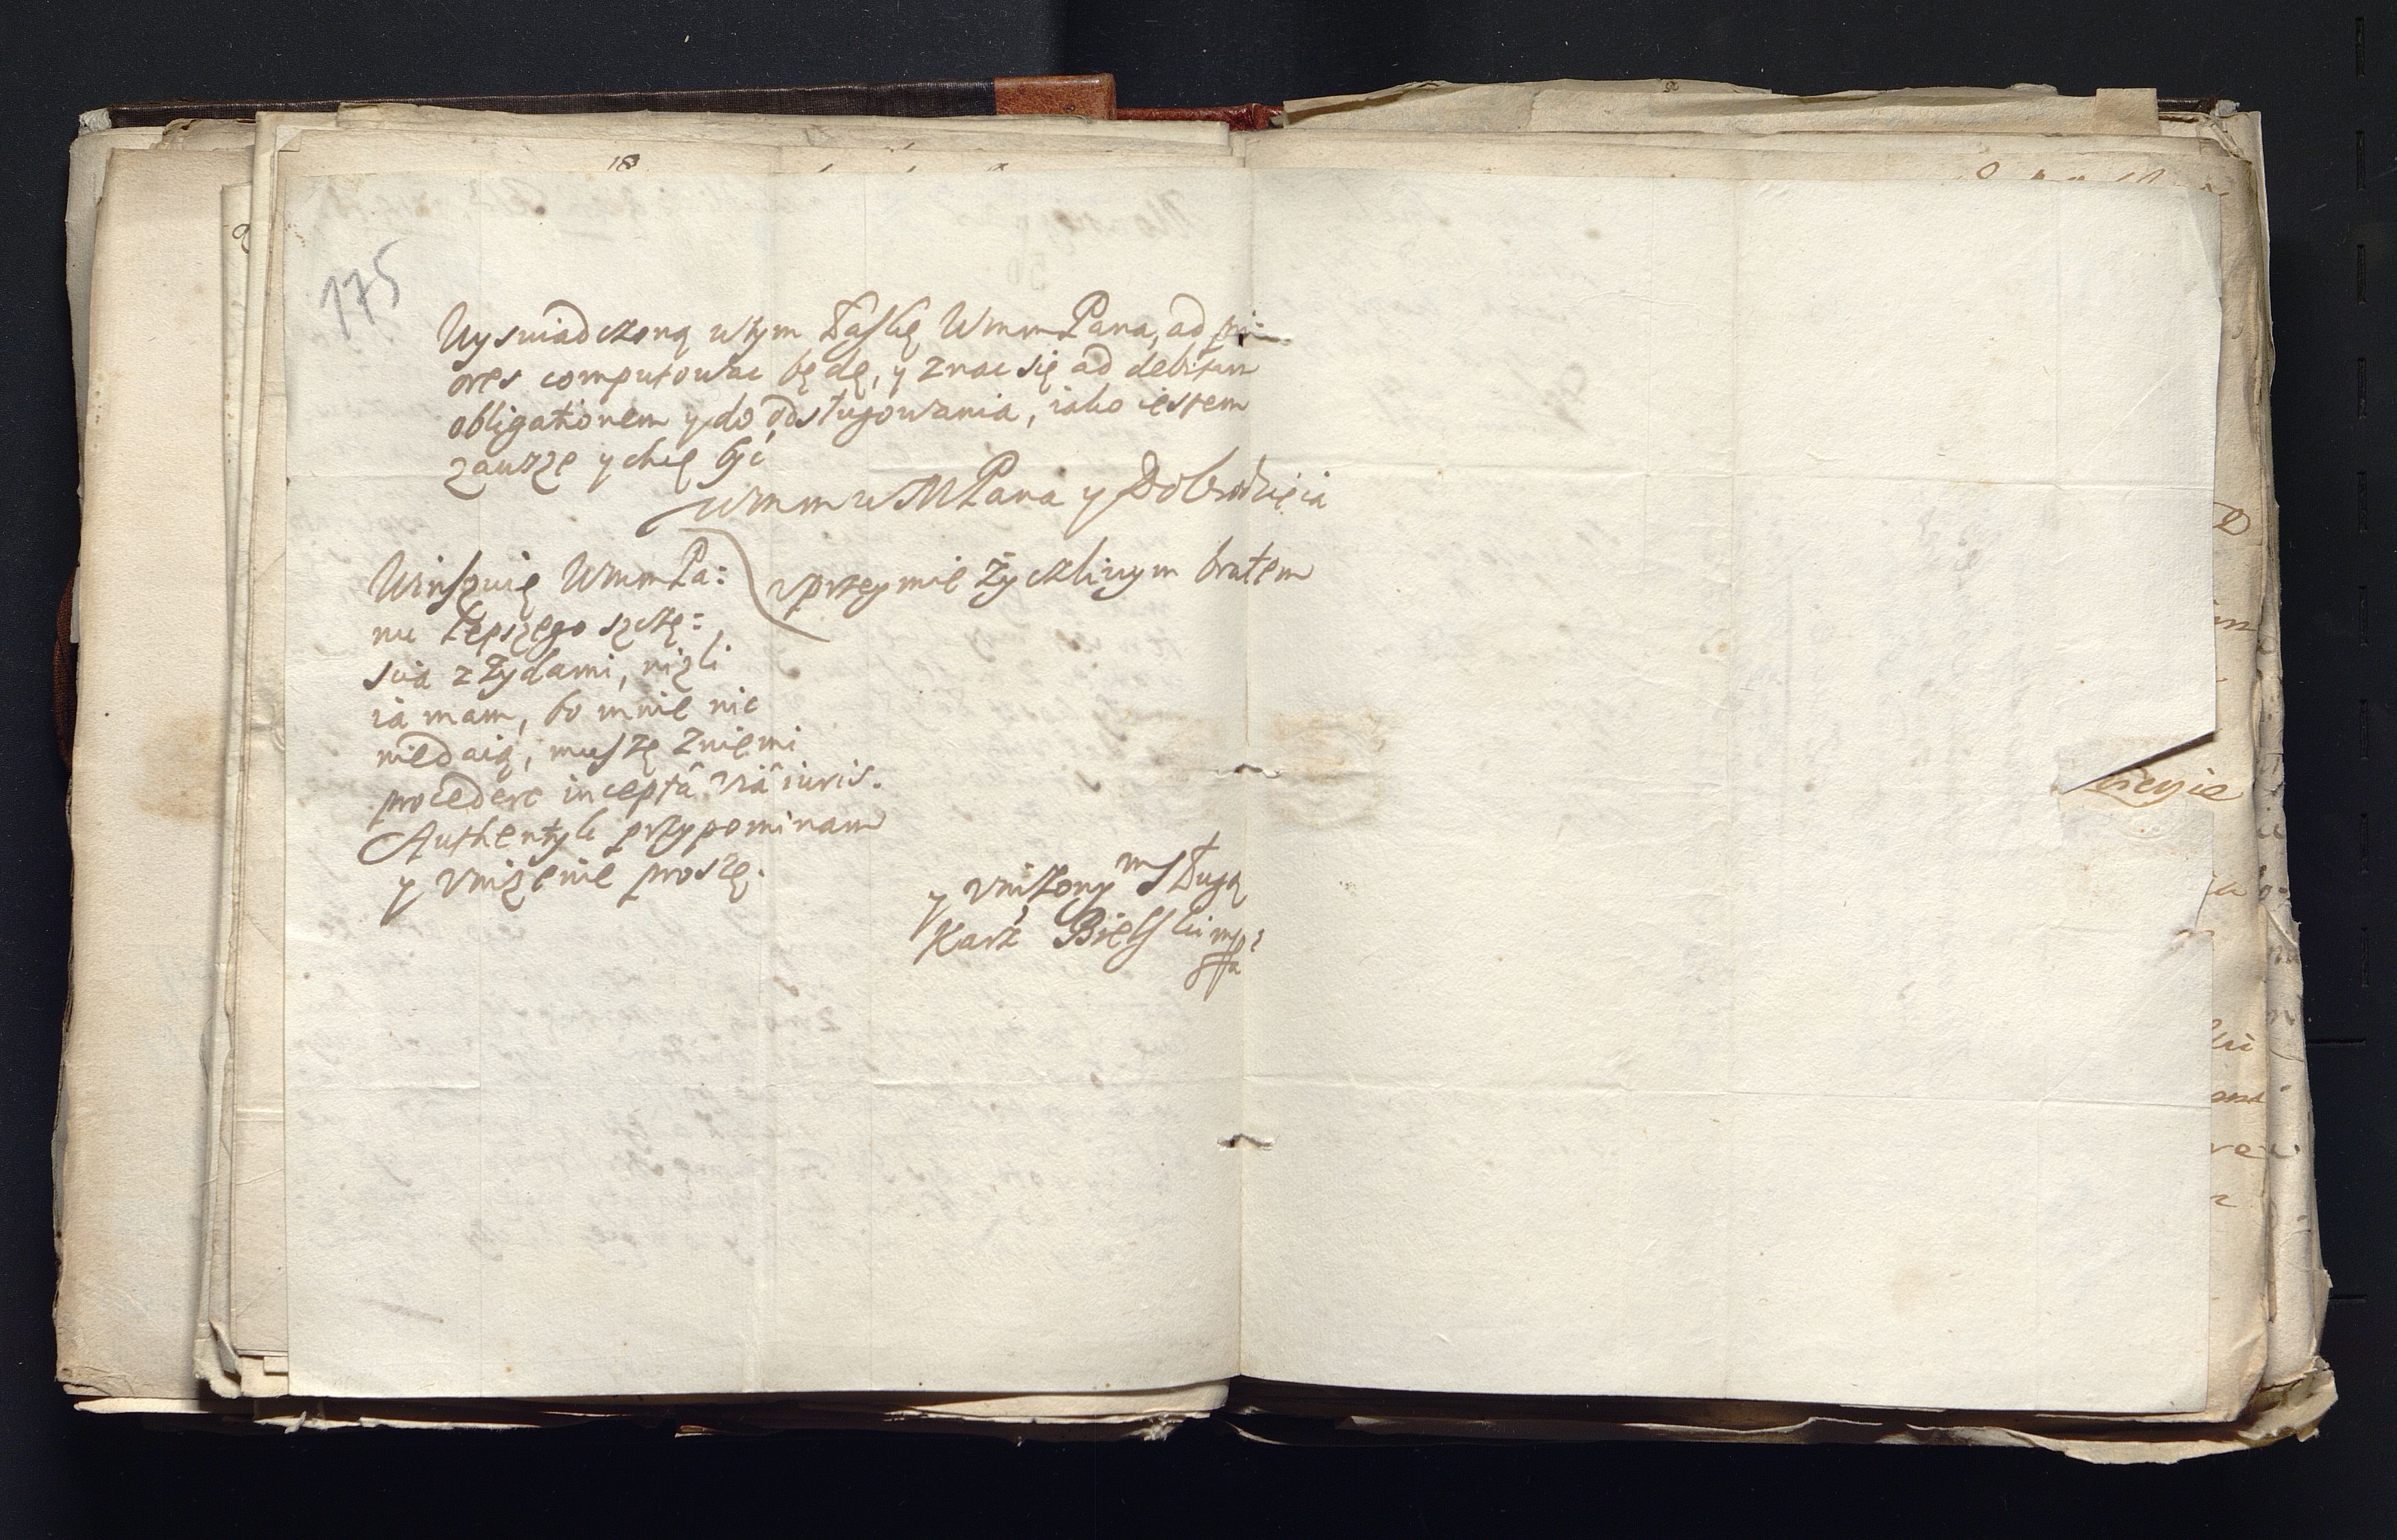 175
Wyswiadczoną wtym Łaskę WmmPana, ad pri-
ores computowac będę, y znac się ad debitam
obligationem y do odsługowania, iako iestem
zawsze y chcę być
Wmm MPana y Dobrodzieia
vprzeymie życzliwym bratem
Winszuię WmmPa:
nu Lepszego szczę:
scia z Żydami, niżli
ia mam, bo mnie nic
niedaią, muszę zniemi
procedere inceptâ viâ iuris.
Authentyk przypominam
y vniżenie proszę.
y vniżonym sługą
Karz Bielski mp